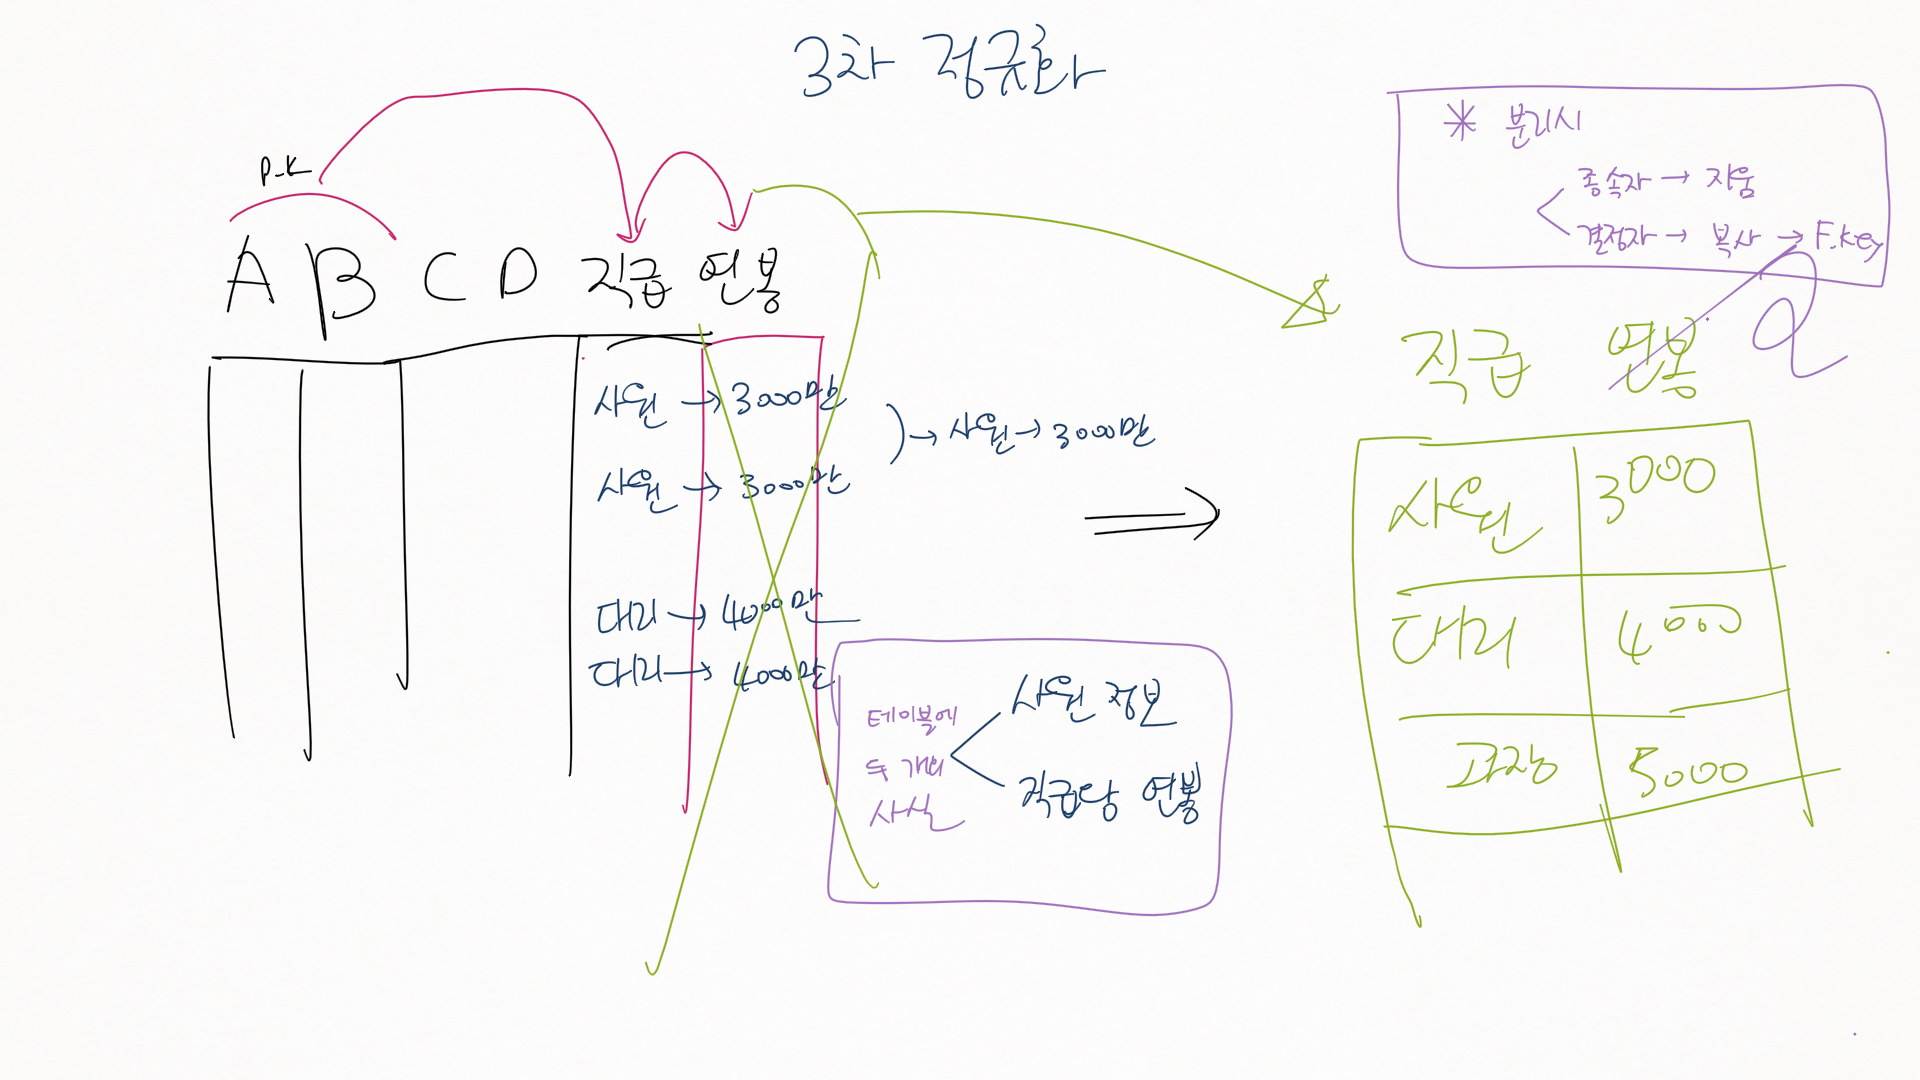 3차 정규화
P.K
A B C D 직급 연봉
사원 → 3000만
사원 → 3000만
→ 사원 → 3000만
대리 → 4000만
대리 → 4000만
테이블에
두 개의
사실
사원 정보
직급당 연봉
* 분리시
종속자 → 지움
결정자 → 복사 → F.key
직급 연봉
사원 3000
대리 4000
과장 5000